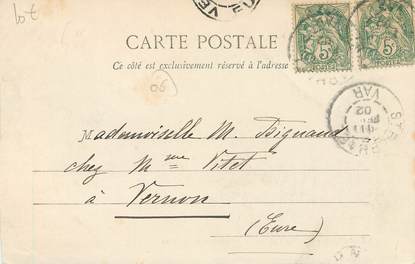 CARTE POSTALE
Ce côté est exclusivement réservé à l'adresse
5c 5c
06
VAR
02
Mademoiselle M.
chez Mme Vitet
à Vernon
(Eure)